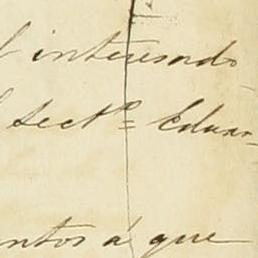 l interesado
l Sectº= Eduar-
ntos á que